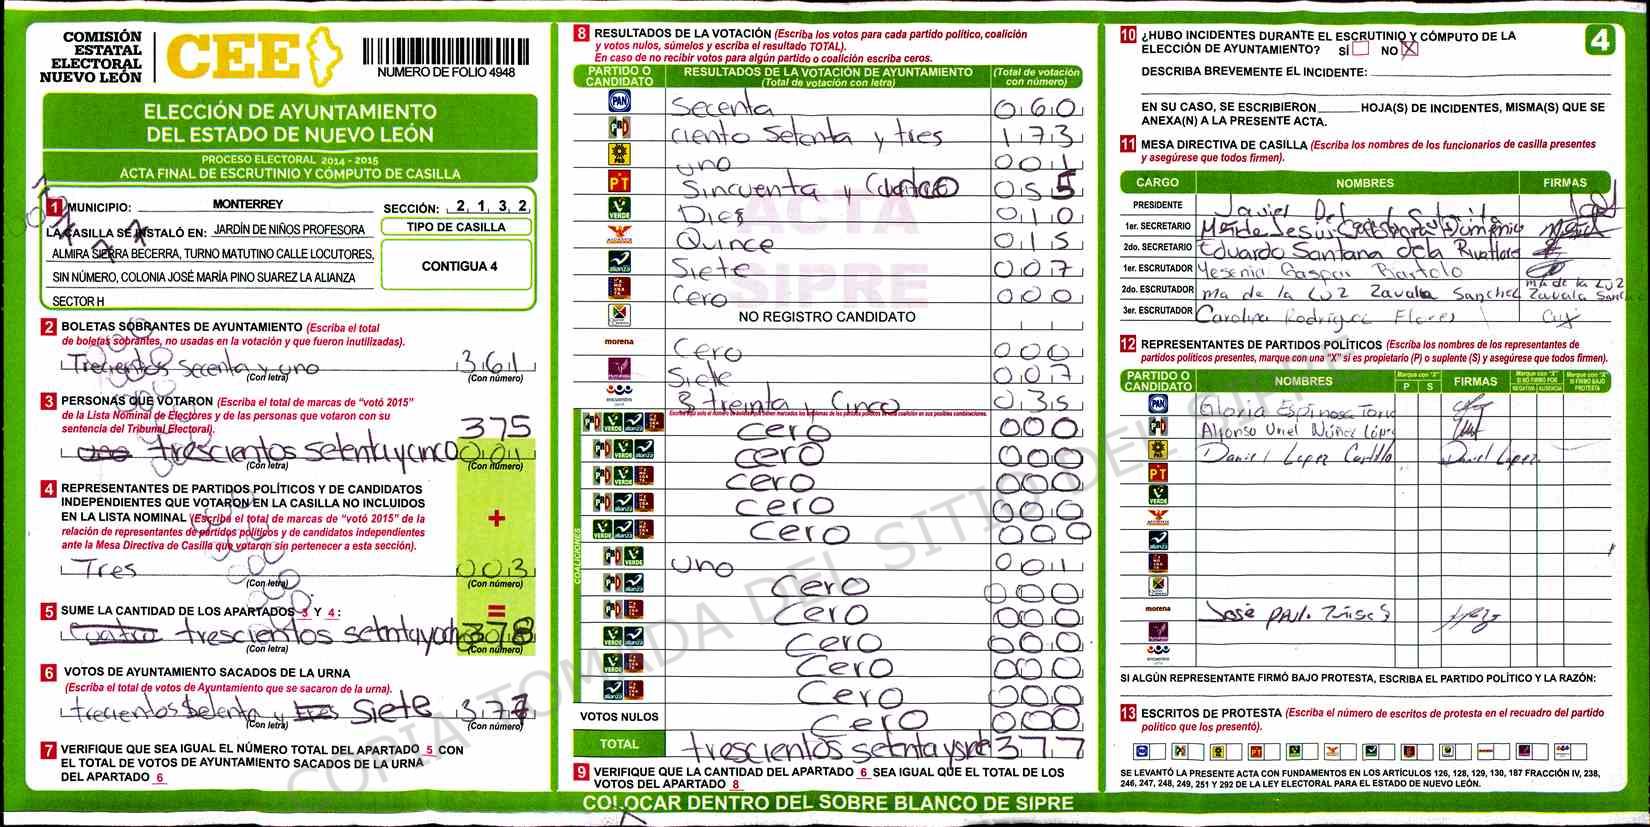 COMISIÓN
ESTATAL
ELECTORAL
NUEVO LEÓN
CEE
NUMERO DE FOLIO 4948
ELECCIÓN DE AYUNTAMIENTO
DEL ESTADO DE NUEVO LEÓN
PROCESO ELECTORAL 2014 - 2015
ACTA FINAL DE ESCRUTINIO Y CÓMPUTO DE CASILLA
1 MUNICIPIO: MONTERREY SECCIÓN: 2, 1, 3, 2,
LA CASILLA SE INSTALÓ EN: JARDÍN DE NIÑOS PROFESORA
ALMIRA SIERRA BECERRA, TURNO MATUTINO CALLE LOCUTORES,
SIN NÚMERO, COLONIA JOSÉ MARÍA PINO SUAREZ LA ALIANZA
SECTOR H
TIPO DE CASILLA
CONTIGUA 4
2 BOLETAS SOBRANTES DE AYUNTAMIENTO (Escriba el total
de boletas sobrantes, no usadas en la votación y que fueron inutilizadas).
Trecientos Secenta y uno 361
(Con letra) (Con número)
3 PERSONAS QUE VOTARON (Escriba el total de marcas de “votó 2015”
de la Lista Nominal de Electores y de las personas que votaron con su
sentencia del Tribunal Electoral).
375
trescientos setenta y cinco 001
(Con letra) (Con número)
4 REPRESENTANTES DE PARTIDOS POLÍTICOS Y DE CANDIDATOS
INDEPENDIENTES QUE VOTARON EN LA CASILLA NO INCLUIDOS
EN LA LISTA NOMINAL (Escriba el total de marcas de “votó 2015” de la
relación de representantes de partidos políticos y de candidatos independientes
ante la Mesa Directiva de Casilla que votaron sin pertenecer a esta sección).
+
Tres 003
(Con letra) (Con número)
=
5 SUME LA CANTIDAD DE LOS APARTADOS 3 Y 4 :
Cuatro trescientos setenta y ocho 378
(Con letra) (Con número)
6 VOTOS DE AYUNTAMIENTO SACADOS DE LA URNA
(Escriba el total de votos de Ayuntamiento que se sacaron de la urna).
trecientos Setenta y tres Siete 377
(Con letra) (Con número)
7 VERIFIQUE QUE SEA IGUAL EL NÚMERO TOTAL DEL APARTADO 5 CON
EL TOTAL DE VOTOS DE AYUNTAMIENTO SACADOS DE LA URNA
DEL APARTADO 6
8 RESULTADOS DE LA VOTACIÓN (Escriba los votos para cada partido político, coalición
y votos nulos, súmelos y escriba el resultado TOTAL).
En caso de no recibir votos para algún partido o coalición escriba ceros.
PARTIDO O CANDIDATO
RESULTADOS DE LA VOTACIÓN DE AYUNTAMIENTO
(Total de votación con letra)
(Total de votación con número)
PAN Secenta 060
PRD ciento Setenta y tres 173
PRD uno 001
PT Sincuenta y 055
VERDE Diez 010
Quince 015
alianza Siete 007
Cero 000
NO REGISTRO CANDIDATO
morena Cero 000
Siete 007
encuentro treinta y Cinco 035
COALICIONES
cero 000
cero 000
cero 000
cero 000
cero 000
uno 001
cero 000
cero 000
cero 000
cero 000
cero 000
VOTOS NULOS cero 000
TOTAL trescientos setenta y siete 377
9 VERIFIQUE QUE LA CANTIDAD DEL APARTADO 6 SEA IGUAL QUE EL TOTAL DE LOS
VOTOS DEL APARTADO 8
COLOCAR DENTRO DEL SOBRE BLANCO DE SIPRE
ACTA
SIPRE
COPIA TOMADA DEL SITIO DEL SIPRE
10 ¿HUBO INCIDENTES DURANTE EL ESCRUTINIO Y CÓMPUTO DE LA
ELECCIÓN DE AYUNTAMIENTO? SÍ NO X
4
DESCRIBA BREVEMENTE EL INCIDENTE:
EN SU CASO, SE ESCRIBIERON HOJA(S) DE INCIDENTES, MISMA(S) QUE SE
ANEXA(N) A LA PRESENTE ACTA.
11 MESA DIRECTIVA DE CASILLA (Escriba los nombres de los funcionarios de casilla presentes
y asegúrese que todos firmen).
CARGO NOMBRES FIRMAS
PRESIDENTE Javier
1er. SECRETARIO
2do. SECRETARIO Eduardo Santana dela
1er. ESCRUTADOR Yesenia Gaspar Bartolo
2do. ESCRUTADOR Ma de la Luz Zavala Sanchez ma de la Luz Zavala
3er. ESCRUTADOR Carolina Rodriguez Flores
12 REPRESENTANTES DE PARTIDOS POLÍTICOS (Escriba los nombres de los representantes de
partidos políticos presentes, marque con una “X” si es propietario (P) o suplente (S) y asegúrese que todos firmen).
PARTIDO O CANDIDATO
NOMBRES
Marque con “X”
P S
FIRMAS
PAN Gloria Espinosa
Alfonso Uriel Núñez López
PRD Daniel Lopez Castillo Daniel Lopez
PT
VERDE
alianza
morena José
encuentro
SI ALGÚN REPRESENTANTE FIRMÓ BAJO PROTESTA, ESCRIBA EL PARTIDO POLÍTICO Y LA RAZÓN:
13 ESCRITOS DE PROTESTA (Escriba el número de escritos de protesta en el recuadro del partido
político que los presentó).
SE LEVANTÓ LA PRESENTE ACTA CON FUNDAMENTOS EN LOS ARTÍCULOS 126, 128, 129, 130, 187 FRACCIÓN IV, 238,
246, 247, 248, 249, 251 Y 292 DE LA LEY ELECTORAL PARA EL ESTADO DE NUEVO LEÓN.